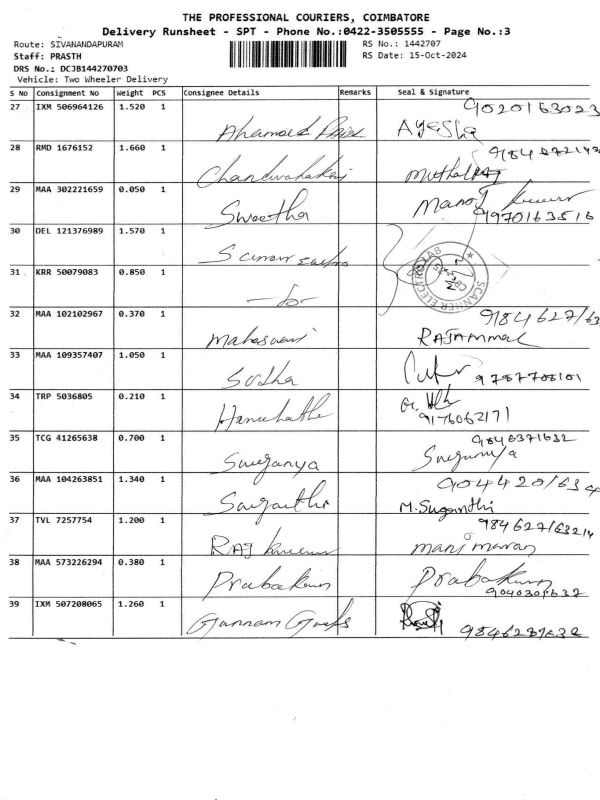 THE PROFESSIONAL COURIERS, COIMBATORE
Delivery Runsheet - SPT - Phone No.:0422-3505555 - Page No.:3
Route: SIVANANDAPURAM RS No.: 1442707
Staff: PRASTH RS Date: 15-Oct-2024
DRS No.: DCJB144270703
Vehicle: Two Wheeler Delivery
S No Consignment No Weight PCS Consignee Details Remarks Seal & Signature
27 IXM 506964126 1.520 1 9020163023
Ahamed Ayesha
28 RMD 1676152 1.660 1
Chandrahakar Muthalraj
29 MAA 302221659 0.050 1 Manoj Kumar
Swetha 91970163516
30 DEL 121376989 1.570 1
Scanner
31 KRR 50079083 0.850 1 SCANNER ELECTRO LAB
-do-
32 MAA 102102967 0.370 1 984627/63
Maheswari RAJAMMAL
33 MAA 109357407 1.050 1
Sudha
34 TRP 5036805 0.210 1
9176062171
35 TCG 41265638 0.700 1 9846371632
Suganya Suganya
36 MAA 104263851 1.340 1 904420/634
M. Suganthi
37 TVL 7257754 1.200 1 984627/63214
RAJ Kumar manimaran
38 MAA 573226294 0.380 1
Prabakaran Prabakaran
39 IXM 507208065 1.260 1
Gunnam